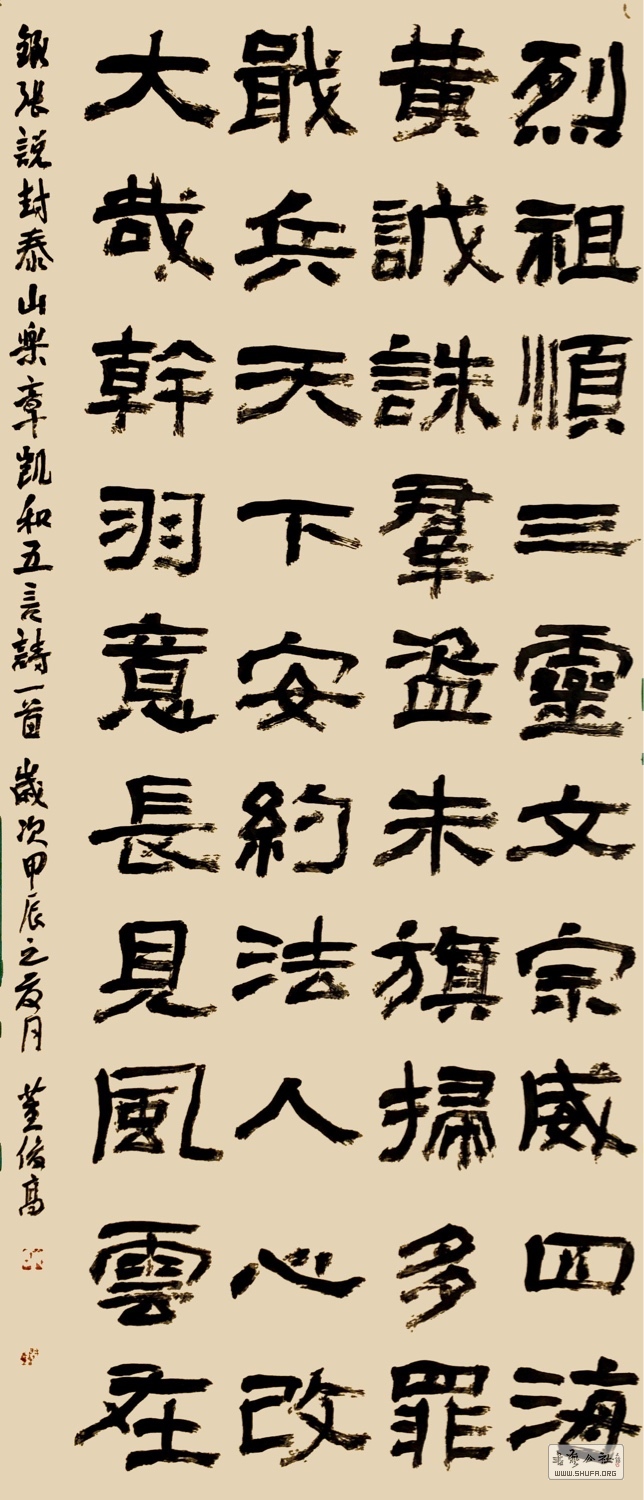 烈祖順三靈文宗威四海
黃誠誅羣盜朱旗掃多罪
戢兵天下安約法人心改
大哉幹羽意長見風雲在
錄張說封泰山樂章凱和五言詩一首 歲次甲辰之夏月 董俊高
书艺公社
WWW.SHUFA.ORG